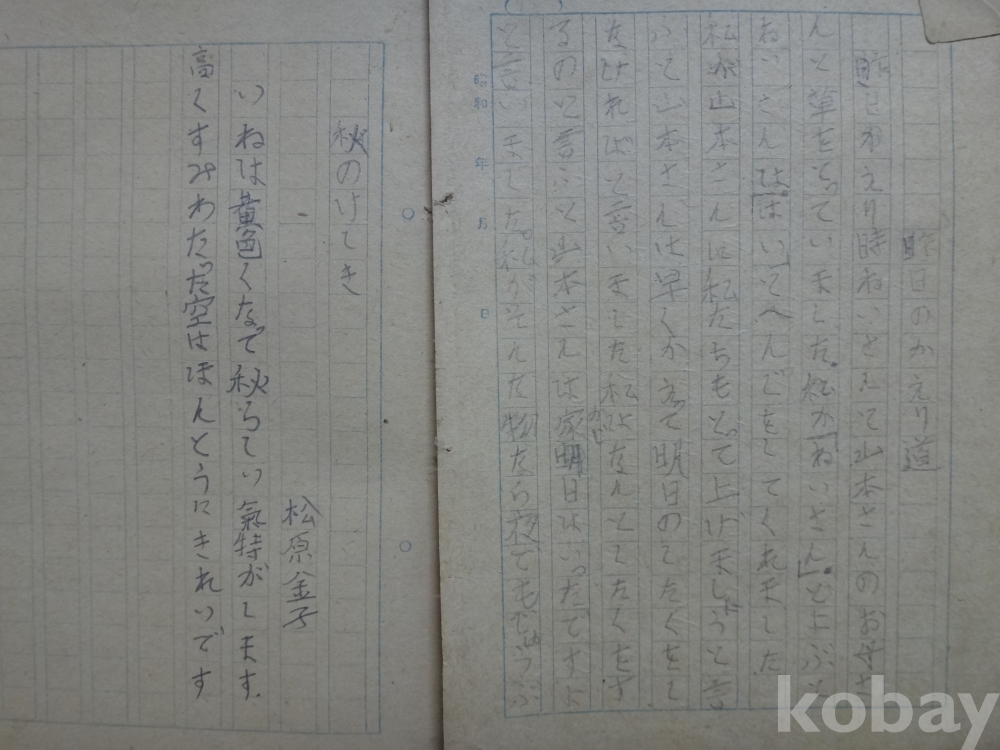 昨日のかえり道
昨日かえり時ねいさんて山本さんのお母さ
んと草をとっていました。私が「ねいさん」とよぶと
ねいさんは「はい」とへんじをしてくれました
私が山本さんに私たちもとって上げましうと言
ふと山本さんは早くかえって明日のしたくをし
なければと言いました私はなんしたくをす
るのと言ふと山本さんは家明日はいったですよ
と言いました。私がそんた物なら夜でも
昭和 年 月 日
秋のけしき
松原金子
いねは黄色くなって秋らしい氣特がします
高くすみわたった空はほんとうにきれいです
kobay